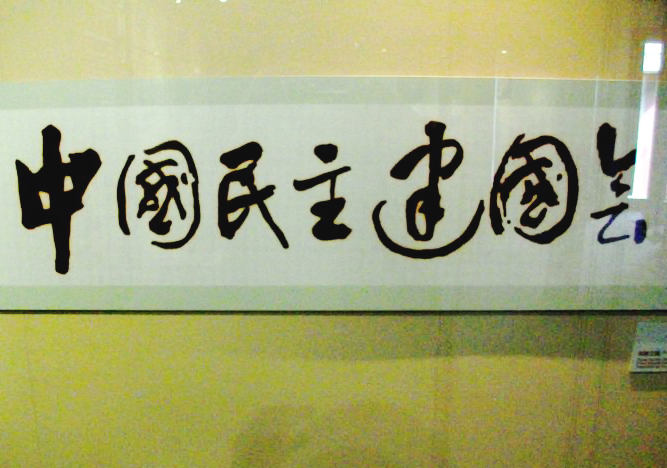 中國民主建國会